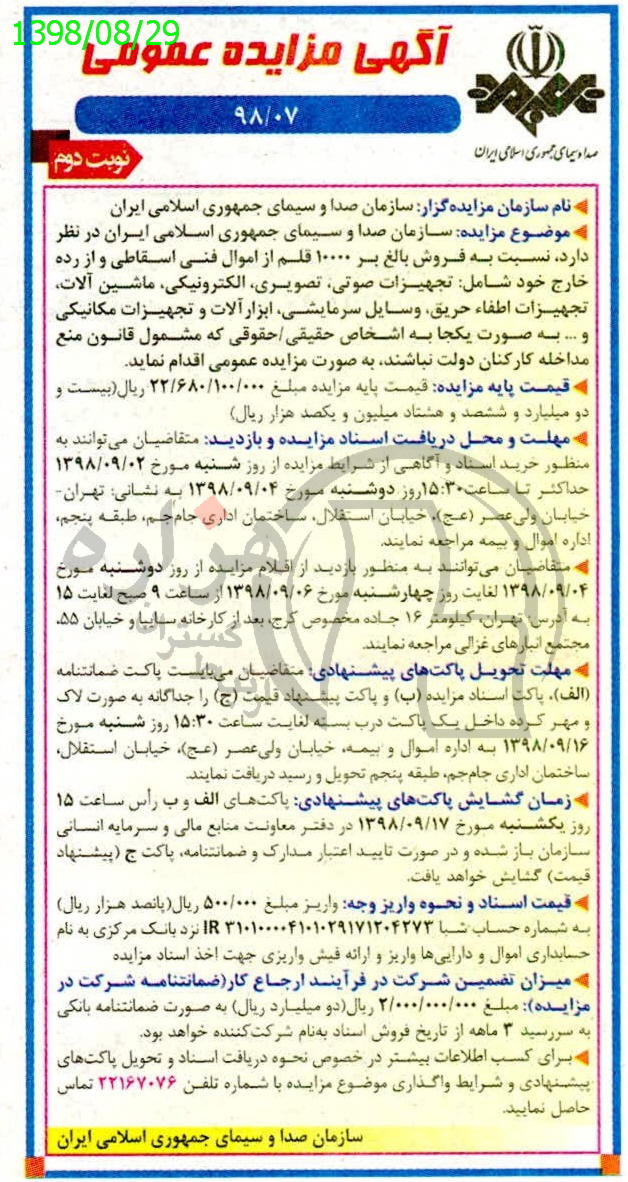 1398/08/29
آگهی مزایده عمومی
۹۸/۰۷
صدا و سیمای جمهوری اسلامی ایران
نوبت دوم
نام سازمان مزایده‌گزار: سازمان صدا و سیمای جمهوری اسلامی ایران
موضوع مزایده: سازمان صدا و سیمای جمهوری اسلامی ایران در نظر
دارد، نسبت به فروش بالغ بر ۱۰۰۰۰ قلم از اموال فنی اسقاطی و از رده
خارج خود شامل: تجهیزات صوتی، تصویری، الکترونیکی، ماشین آلات،
تجهیزات اطفاء حریق، وسایل سرمایشی، ابزارآلات و تجهیزات مکانیکی
و ... به صورت یکجا به اشخاص حقیقی/حقوقی که مشمول قانون منع
مداخله کارکنان دولت نباشند، به صورت مزایده عمومی اقدام نماید.
قیمت پایه مزایده: قیمت پایه مزایده مبلغ ۲۲/۶۸۰/۱۰۰/۰۰۰ ریال(بیست و
دو میلیارد و ششصد و هشتاد میلیون و یکصد هزار ریال)
مهلت و محل دریافت اسناد مزایده و بازدید: متقاضیان می‌توانند به
منظور خرید اسناد و آگاهی از شرایط مزایده از روز شنبه مورخ ۱۳۹۸/۰۹/۰۲
حداکثر تا ساعت۱۵:۳۰روز دوشنبه مورخ ۱۳۹۸/۰۹/۰۴ به نشانی: تهران-
خیابان ولی‌عصر (عج)، خیابان استقلال، ساختمان اداری جام‌جم، طبقه پنجم،
اداره اموال و بیمه مراجعه نمایند.
متقاضیان می‌توانند به منظور بازدید از اقلام مزایده از روز دوشنبه مورخ
۱۳۹۸/۰۹/۰۴ لغایت روز چهارشنبه مورخ ۱۳۹۸/۰۹/۰۶ از ساعت ۹ صبح لغایت ۱۵
به آدرس: تهران، کیلومتر ۱۶ جاده مخصوص کرج، بعد از کارخانه سایپا و خیابان ۵۵،
مجتمع انبارهای غزالی مراجعه نمایند.
مهلت تحویل پاکت‌های پیشنهادی: متقاضیان می‌بایست پاکت ضمانتنامه
(الف)، پاکت اسناد مزایده (ب) و پاکت پیشنهاد قیمت (ج) را جداگانه به صورت لاک
و مهر کرده داخل یک پاکت درب بسته لغایت ساعت ۱۵:۳۰ روز شنبه مورخ
۱۳۹۸/۰۹/۱۶ به اداره اموال و بیمه، خیابان ولی‌عصر (عج)، خیابان استقلال،
ساختمان اداری جام‌جم، طبقه پنجم تحویل و رسید دریافت نمایند.
زمان گشایش پاکت‌های پیشنهادی: پاکت‌های الف و ب رأس ساعت ۱۵
روز یکشنبه مورخ ۱۳۹۸/۰۹/۱۷ در دفتر معاونت منابع مالی و سرمایه انسانی
سازمان باز شده و در صورت تایید اعتبار مدارک و ضمانتنامه، پاکت ج (پیشنهاد
قیمت) گشایش خواهد یافت.
قیمت اسناد و نحوه واریز وجه: واریز مبلغ ۵۰۰/۰۰۰ ریال(پانصد هزار ریال)
به شماره حساب شبا IR ۳۱۰۱۰۰۰۰۴۱۰۱۰۲۹۱۷۱۲۰۴۲۷۳ نزد بانک مرکزی به نام
حسابداری اموال و دارایی‌ها واریز و ارائه فیش واریزی جهت اخذ اسناد مزایده
میزان تضمین شرکت در فرآیند ارجاع کار(ضمانتنامه شرکت در
مزایده): مبلغ ۲/۰۰۰/۰۰۰/۰۰۰ ریال(دو میلیارد ریال) به صورت ضمانتنامه بانکی
به سررسید ۳ ماهه از تاریخ فروش اسناد به‌نام شرکت‌کننده خواهد بود.
برای کسب اطلاعات بیشتر در خصوص نحوه دریافت اسناد و تحویل پاکت‌های
پیشنهادی و شرایط واگذاری موضوع مزایده با شماره تلفن ۲۲۱۶۷۰۷۶ تماس
حاصل نمایید.
سازمان صدا و سیمای جمهوری اسلامی ایران